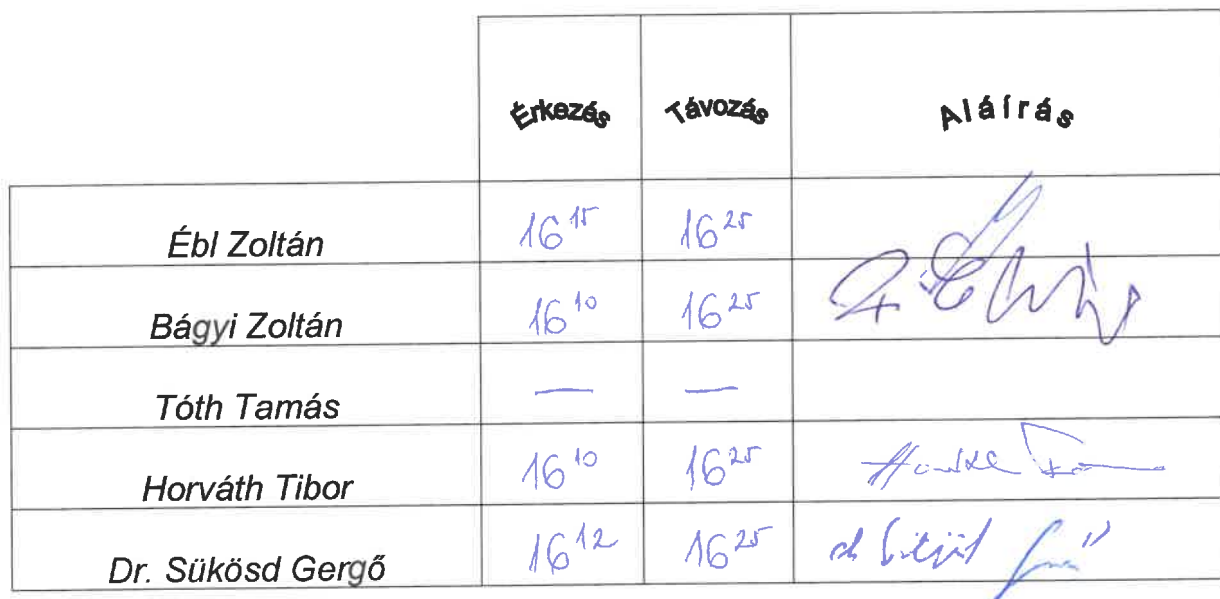 Érkezés Távozás Aláírás
Ébl Zoltán 16 15 16 25
Bágyi Zoltán 16 10 16 25
Tóth Tamás — —
Horváth Tibor 16 10 16 25
Dr. Sükösd Gergő 16 12 16 25